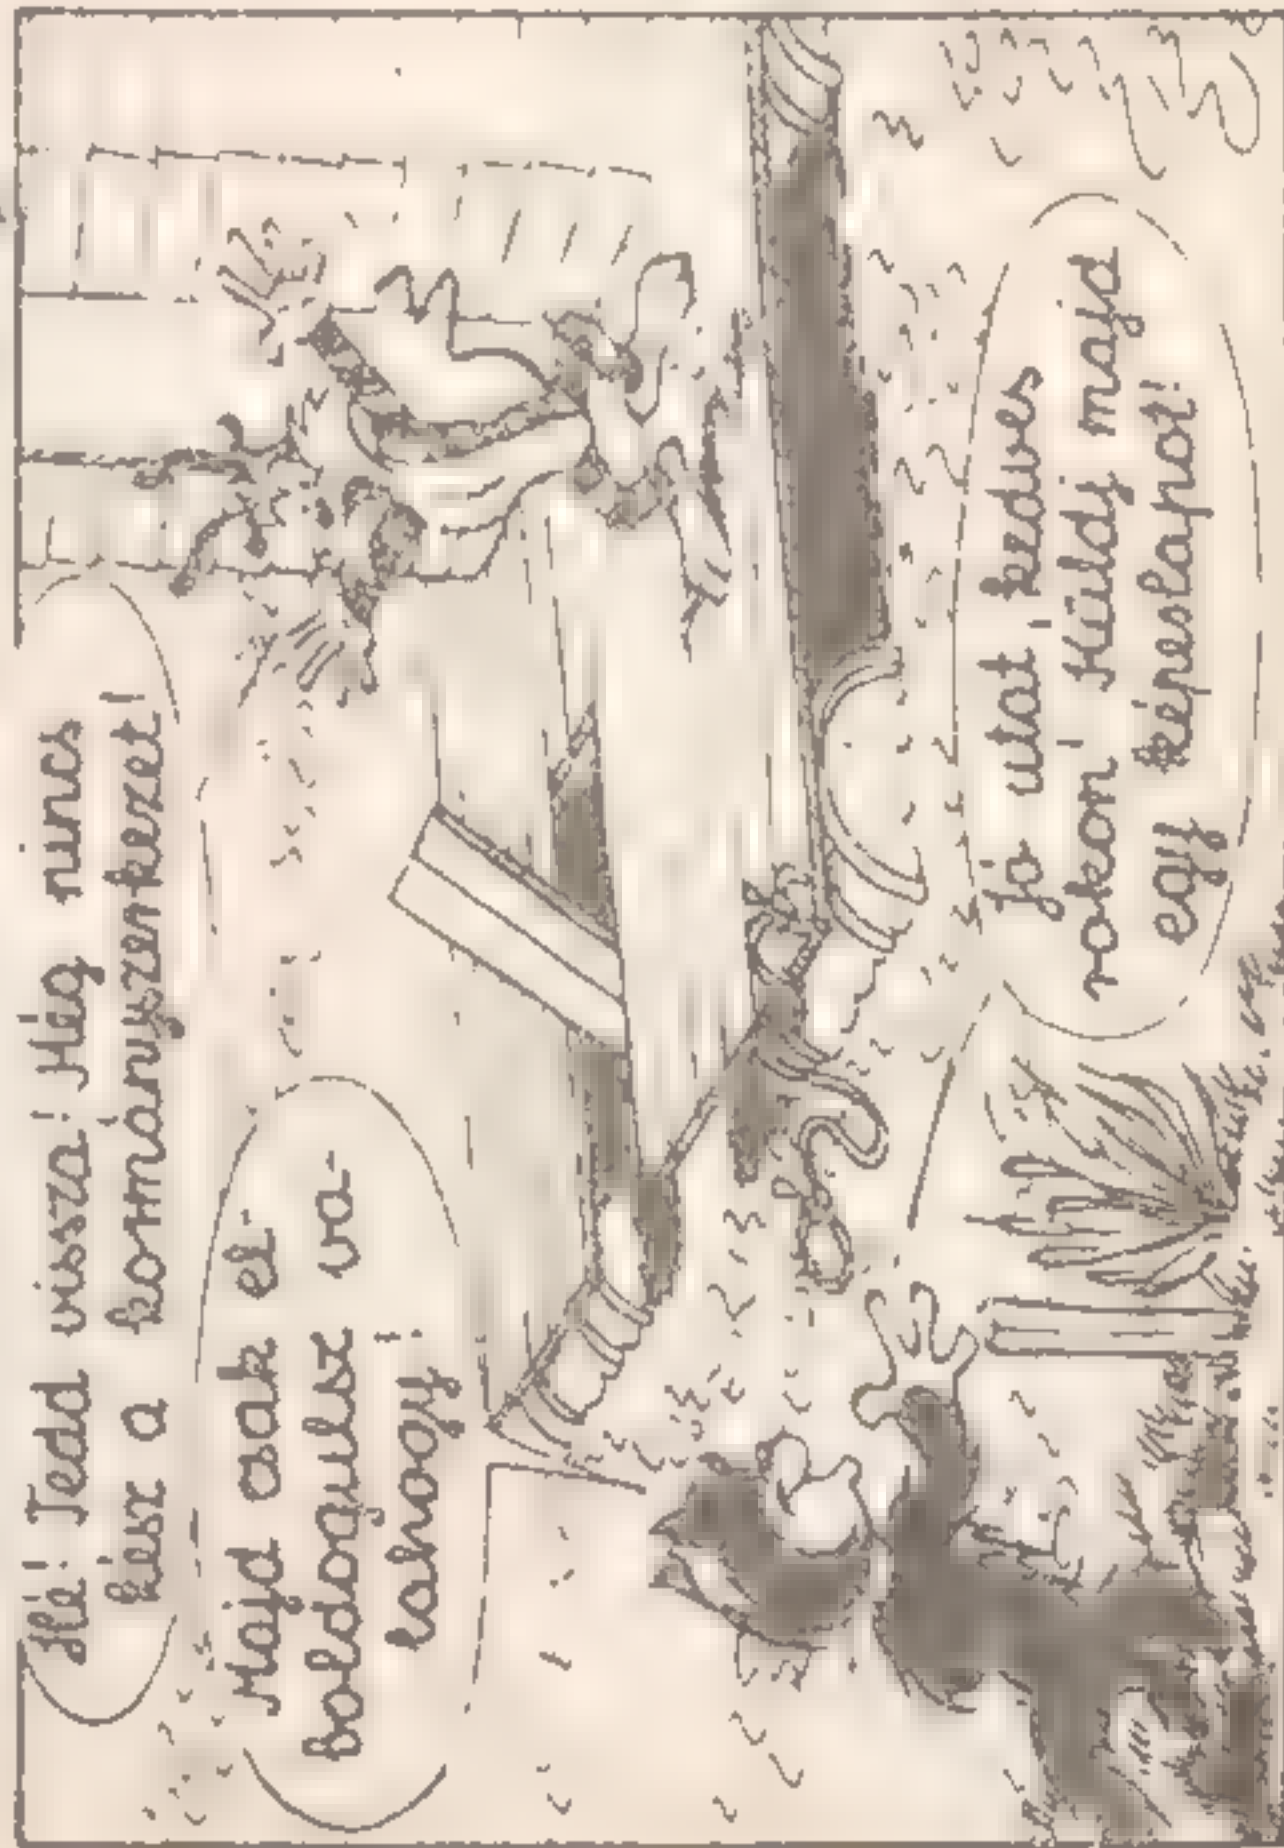 Hé! Tedd vissza! Még nincs
kész a kormányszerkezet!
Majd csak el-
boldogulsz va-
lahogy!
Jó utat, kedves
rokon! Küldj majd
egy képeslapot!